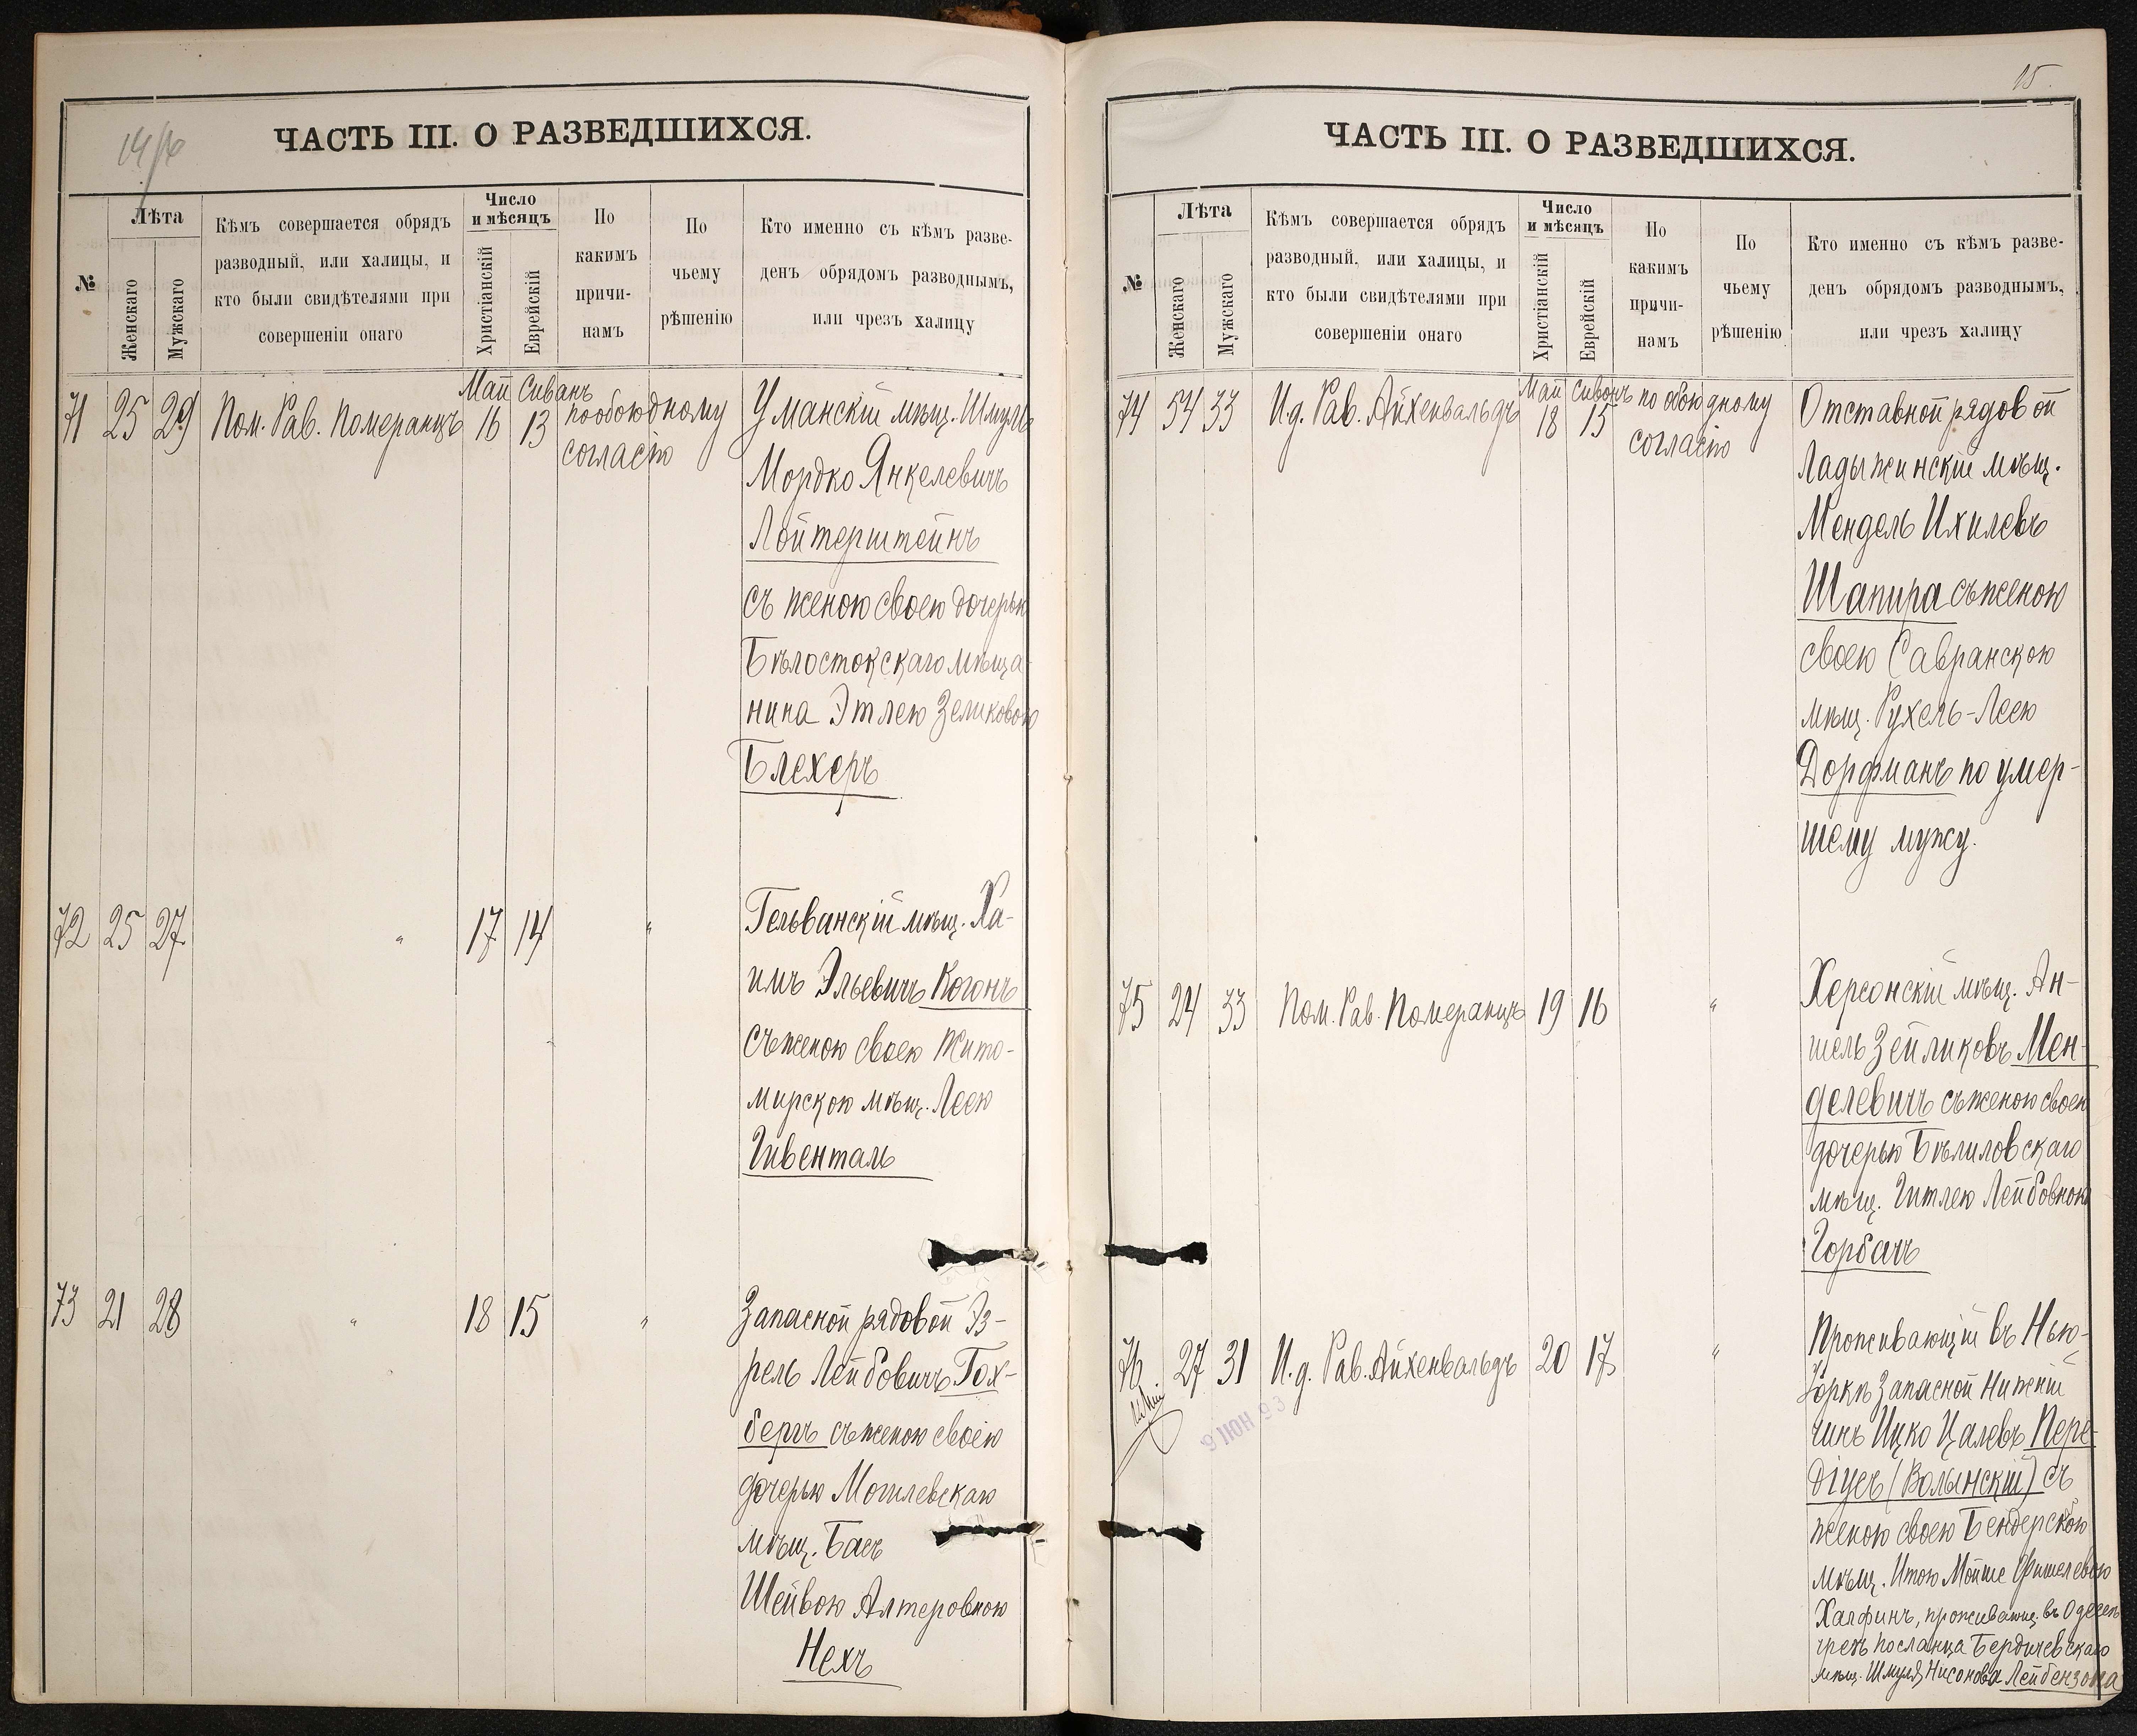 14/16
ЧАСТЬ III. О РАЗВЕДШИХСЯ.
№
Лѣта
Женскаго
Мужскаго
Кѣмъ совершается обрядъ
разводный, или халицы, и
кто были свидѣтелями при
совершеніи онаго
Число
и мѣсяцъ
Христіанскій
Еврейскій
По
какимъ
причи-
намъ
По
чьему
рѣшенію
Кто именно съ кѣмъ разве-
денъ обрядомъ разводнымъ,
или чрезъ халицу
Май Сиванъ
71 25 29 Пом. Рав. Померанцъ 16 13 по обоюдному
согласію
Уманскій мѣщ. Шмуль
Мордко Янкелевичъ
Лойтерштейнъ
съ женою своею дочерью
Бѣлостокскаго мѣща-
нина Этлею Зеликовою
Блехеръ
72 25 27 " 17 14 "
Гельванскій мѣщ. Ха-
имъ Эльевичъ Когонъ
съ женою своею Жито-
мирскою мѣщ. Леею
Гивенталь
73 21 28 " 18 15 "
Запасной рядовой Эз-
рель Лейбовичъ Гох-
бергъ съ женою своею
дочерью Могилевскаго
мѣщ. Басъ
Шейвою Алтеровною
Нехъ
15.
ЧАСТЬ III. О РАЗВЕДШИХСЯ.
№
Лѣта
Женскаго
Мужскаго
Кѣмъ совершается обрядъ
разводный, или халицы, и
кто были свидѣтелями при
совершеніи онаго
Число
и мѣсяцъ
Христіанскій
Еврейскій
По
какимъ
причи-
намъ
По
чьему
рѣшенію
Кто именно съ кѣмъ разве-
денъ обрядомъ разводнымъ,
или чрезъ халицу
Май Сиванъ
74 54 33 И.д. Рав. Айхенвальдъ 18 15 по обоюдному
согласію
Отставной рядовой
Ладыжинскій мѣщ.
Мендель Ихилевъ
Шапира съ женою
своею Савранскою
мѣщ. Рухель-Леею
Дорфманъ по умер-
шему мужу.
75 24 33 Пом. Рав. Померанцъ 19 16 "
Херсонскій мѣщ. Ан-
шель Зейликовъ Мен-
делевичъ съ женою своею
дочерью Бѣлиловскаго
мѣщ. Гитлею Лейбовною
Горбачъ
76 27 31 И.д. Рав. Айхенвальдъ 20 17 "
9 ІЮН 93
Проживающій въ Нью-
Іоркѣ Запасной Нижній
чинъ Ицко Цалевъ Пере-
діусъ (Волынскій) съ
женою своею Бендерскою
мѣщ. Итою Мойше Фишелевою
Халфинъ, проживающ. въ Одессѣ
чрезъ посланца Бердичевскаго
мѣщ. Шмуля Нисонова Лейбензона